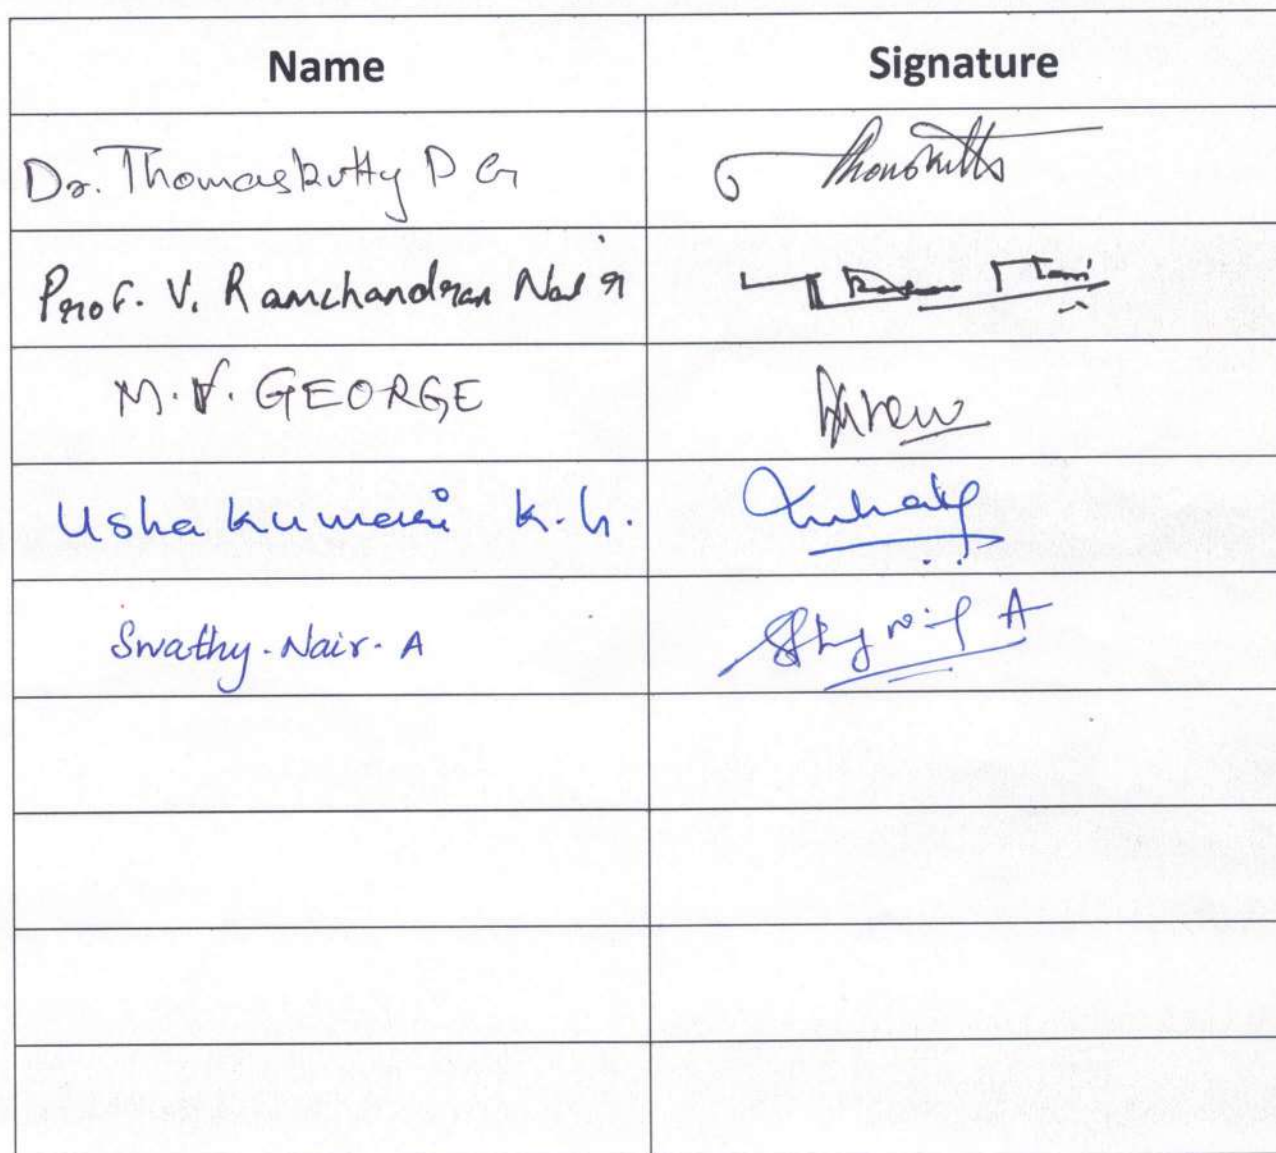 Name Signature
Dr. Thomaskutty P G
Prof. V. Ramchandran Nair
M. V. GEORGE
Ushakumari K. G.
Swathy. Nair. A